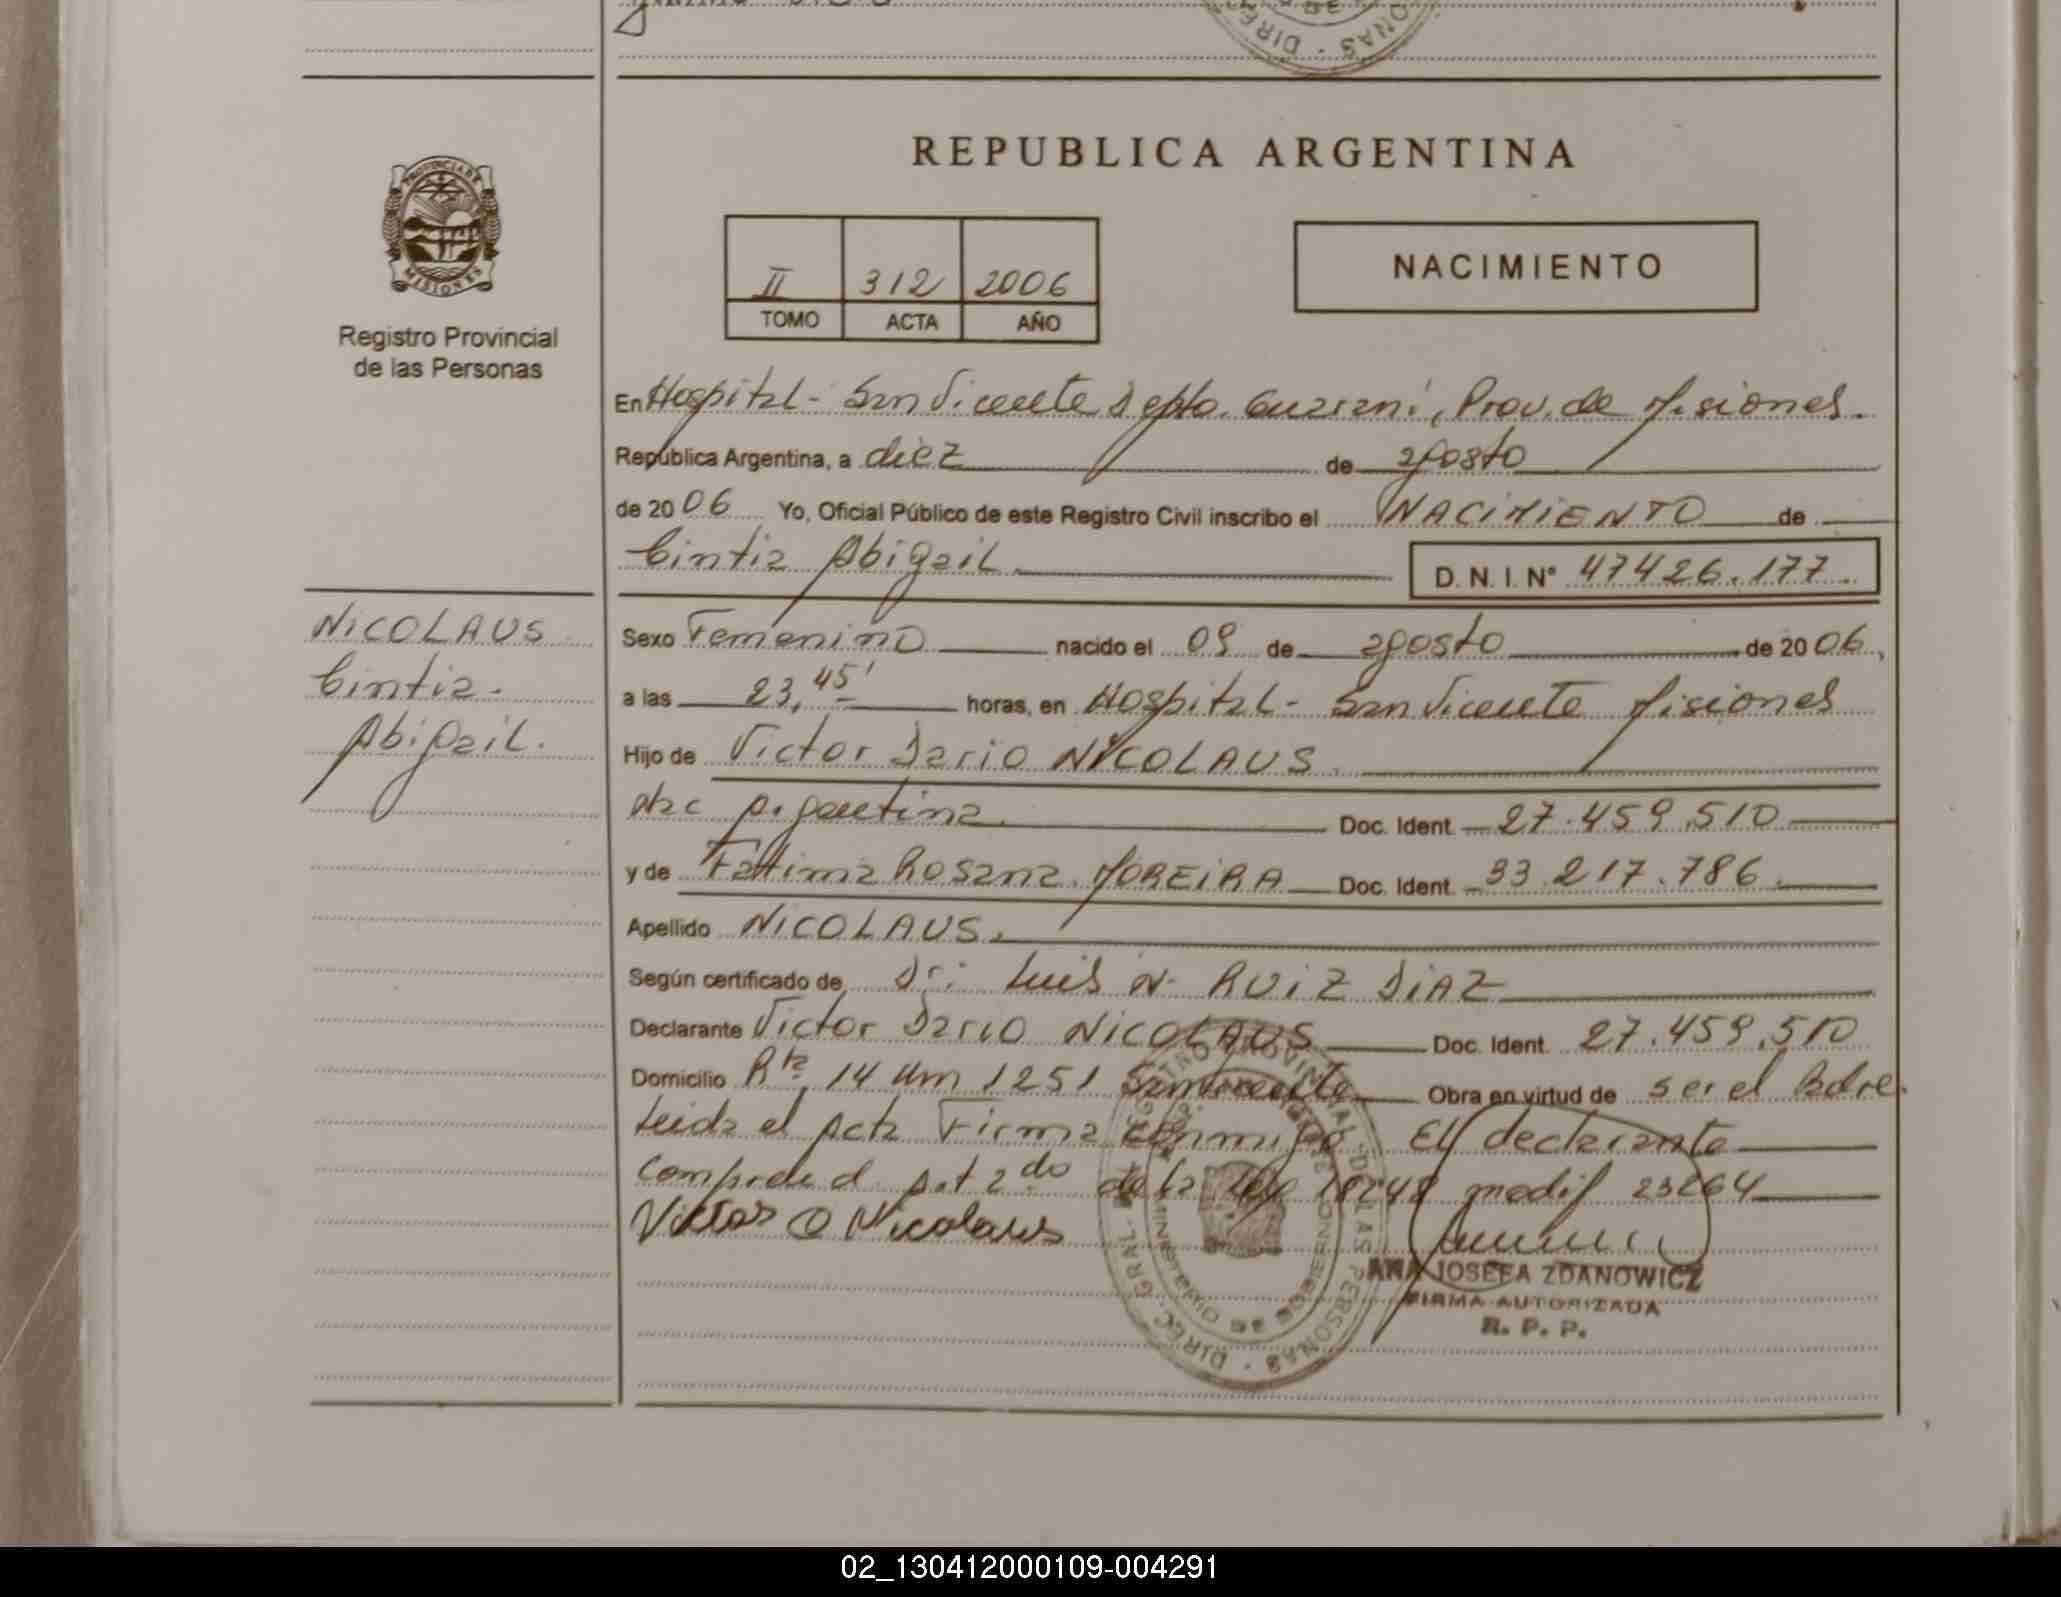 REPUBLICA ARGENTINA
PROVINCIA DE
MISIONES
Registro Provincial
de las Personas
II 312 2006
TOMO ACTA AÑO
NACIMIENTO
En Hospital - San Vicente Depto. Guaraní, Prov. de Misiones.
República Argentina, a diez de agosto
de 2006 Yo, Oficial Público de este Registro Civil inscribo el NACIMIENTO de
Cintia Abigail D. N. I. Nº 47426.177.
NICOLAUS
Cintia.
Abigail.
Sexo Femenino nacido el 09 de agosto de 2006,
a las 23,45' horas, en Hospital - San Vicente Misiones
Hijo de Victor Dario NICOLAUS.
Nac Argentina. Doc. Ident. 27.459.510
y de Fatima Rosana MOREIRA Doc. Ident. 33.217.786.
Apellido NICOLAUS.
Según certificado de Dr: Luis N. RUIZ DIAZ
Declarante Victor Dario NICOLAUS Doc. Ident. 27.459.510
Domicilio Rta 14 Km 1251 San Vicente Obra en virtud de ser el Padre.
Leida el Acta Firma conmigo El declarante
Comprend. Art 2do de la Ley modif 23264
Victor D Nicolaus
ANA JOSEFA ZDANOWICZ
FIRMA AUTORIZADA
R. P. P.
02_130412000109-004291